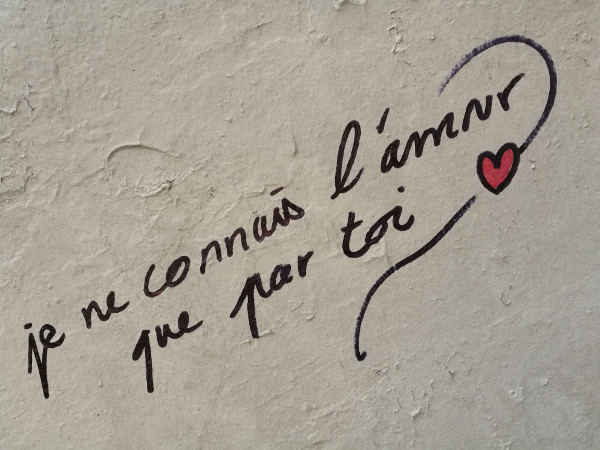 je ne connais l'amour
que par toi